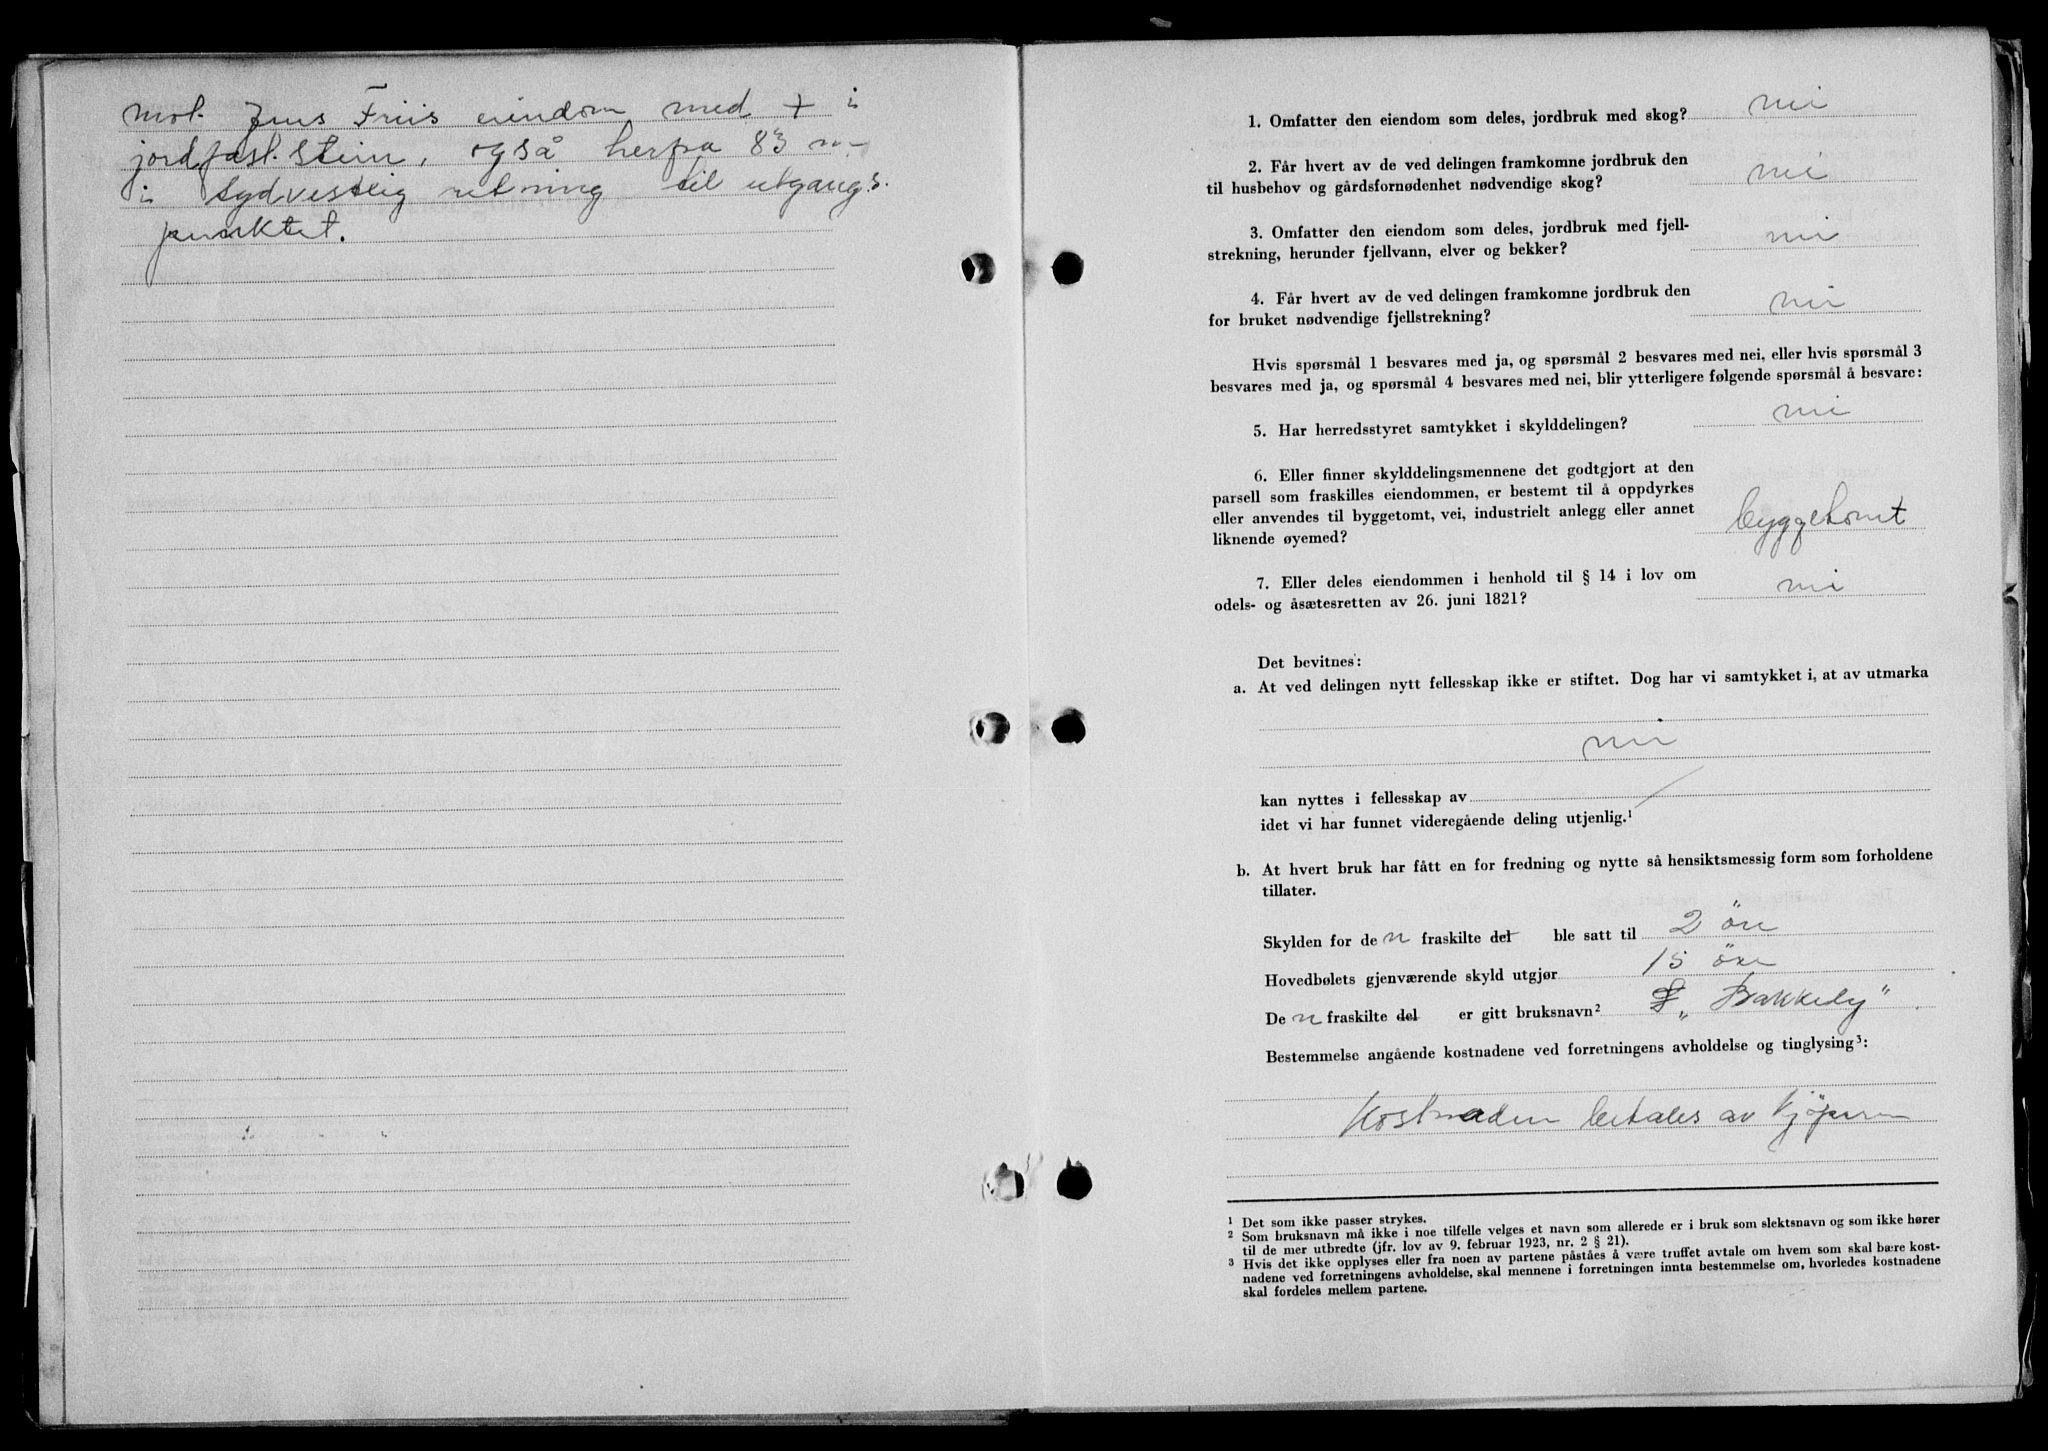 mot Jens Friis eiendom med + i
jordfast stein, også herfra 83 m
i sydvestlig retning til utgangs
punktet.
1. Omfatter den eiendom som deles, jordbruk med skog? nei
2. Får hvert av de ved delingen framkomne jordbruk den
til husbehov og gårdsfornødenhet nødvendige skog? nei
3. Omfatter den eiendom som deles, jordbruk med fjell-
strekning, herunder fjellvann, elver og bekker? nei
4. Får hvert av de ved delingen framkomne jordbruk den
for bruket nødvendige fjellstrekning? nei
Hvis spørsmål 1 besvares med ja, og spørsmål 2 besvares med nei, eller hvis spørsmål 3
besvares med ja, og spørsmål 4 besvares med nei, blir ytterligere følgende spørsmål å besvare:
5. Har herredsstyret samtykket i skylddelingen? nei
6. Eller finner skylddelingsmennene det godtgjort at den
parsell som fraskilles eiendommen, er bestemt til å oppdyrkes
eller anvendes til byggetomt, vei, industrielt anlegg eller annet
liknende øyemed? byggetomt
7. Eller deles eiendommen i henhold til § 14 i lov om
odels- og åsætesretten av 26. juni 1821? nei
Det bevitnes:
a. At ved delingen nytt fellesskap ikke er stiftet. Dog har vi samtykket i, at av utmarka
nei
kan nyttes i fellesskap av
idet vi har funnet videregående deling utjenlig.¹
b. At hvert bruk har fått en for fredning og nytte så hensiktsmessig form som forholdene
tillater.
Skylden for de n fraskilte del ble satt til 2 öre
Hovedbølets gjenværende skyld utgjør 15 öre
De n fraskilte del er gitt bruksnavn² „Bakkely"
Bestemmelse angående kostnadene ved forretningens avholdelse og tinglysing³:
Kostnaden betales av kjöperen
¹ Det som ikke passer strykes.
² Som bruksnavn må ikke i noe tilfelle velges et navn som allerede er i bruk som slektsnavn og som ikke hører
til de mer utbredte (jfr. lov av 9. februar 1923, nr. 2 § 21).
³ Hvis det ikke opplyses eller fra noen av partene påståes å være truffet avtale om hvem som skal bære kost-
nadene ved forretningens avholdelse, skal mennene i forretningen innta bestemmelse om, hvorledes kostnadene
skal fordeles mellem partene.